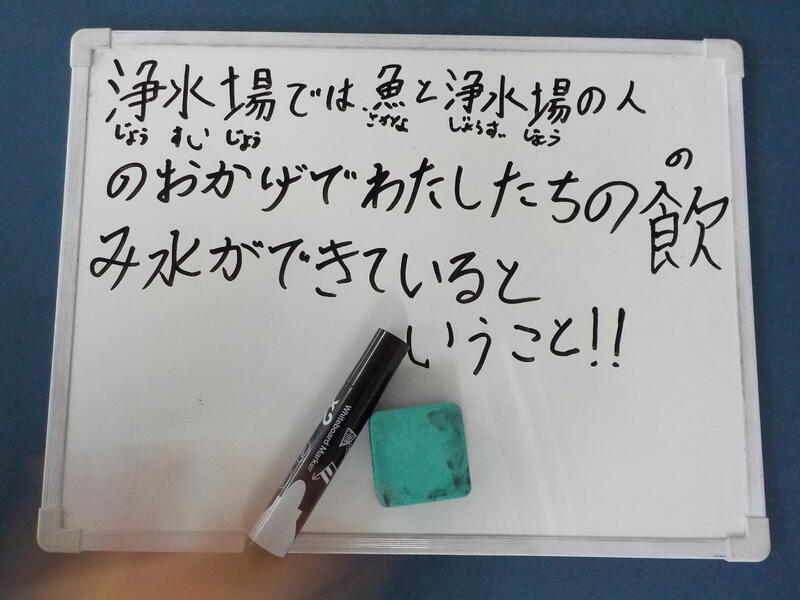 浄水場では魚と浄水場の人
じょう すい じょう さかな じょうすい じょう
のおかげでわたしたちの飲
の
み水ができていると
いうこと!!
Whiteboard Marker